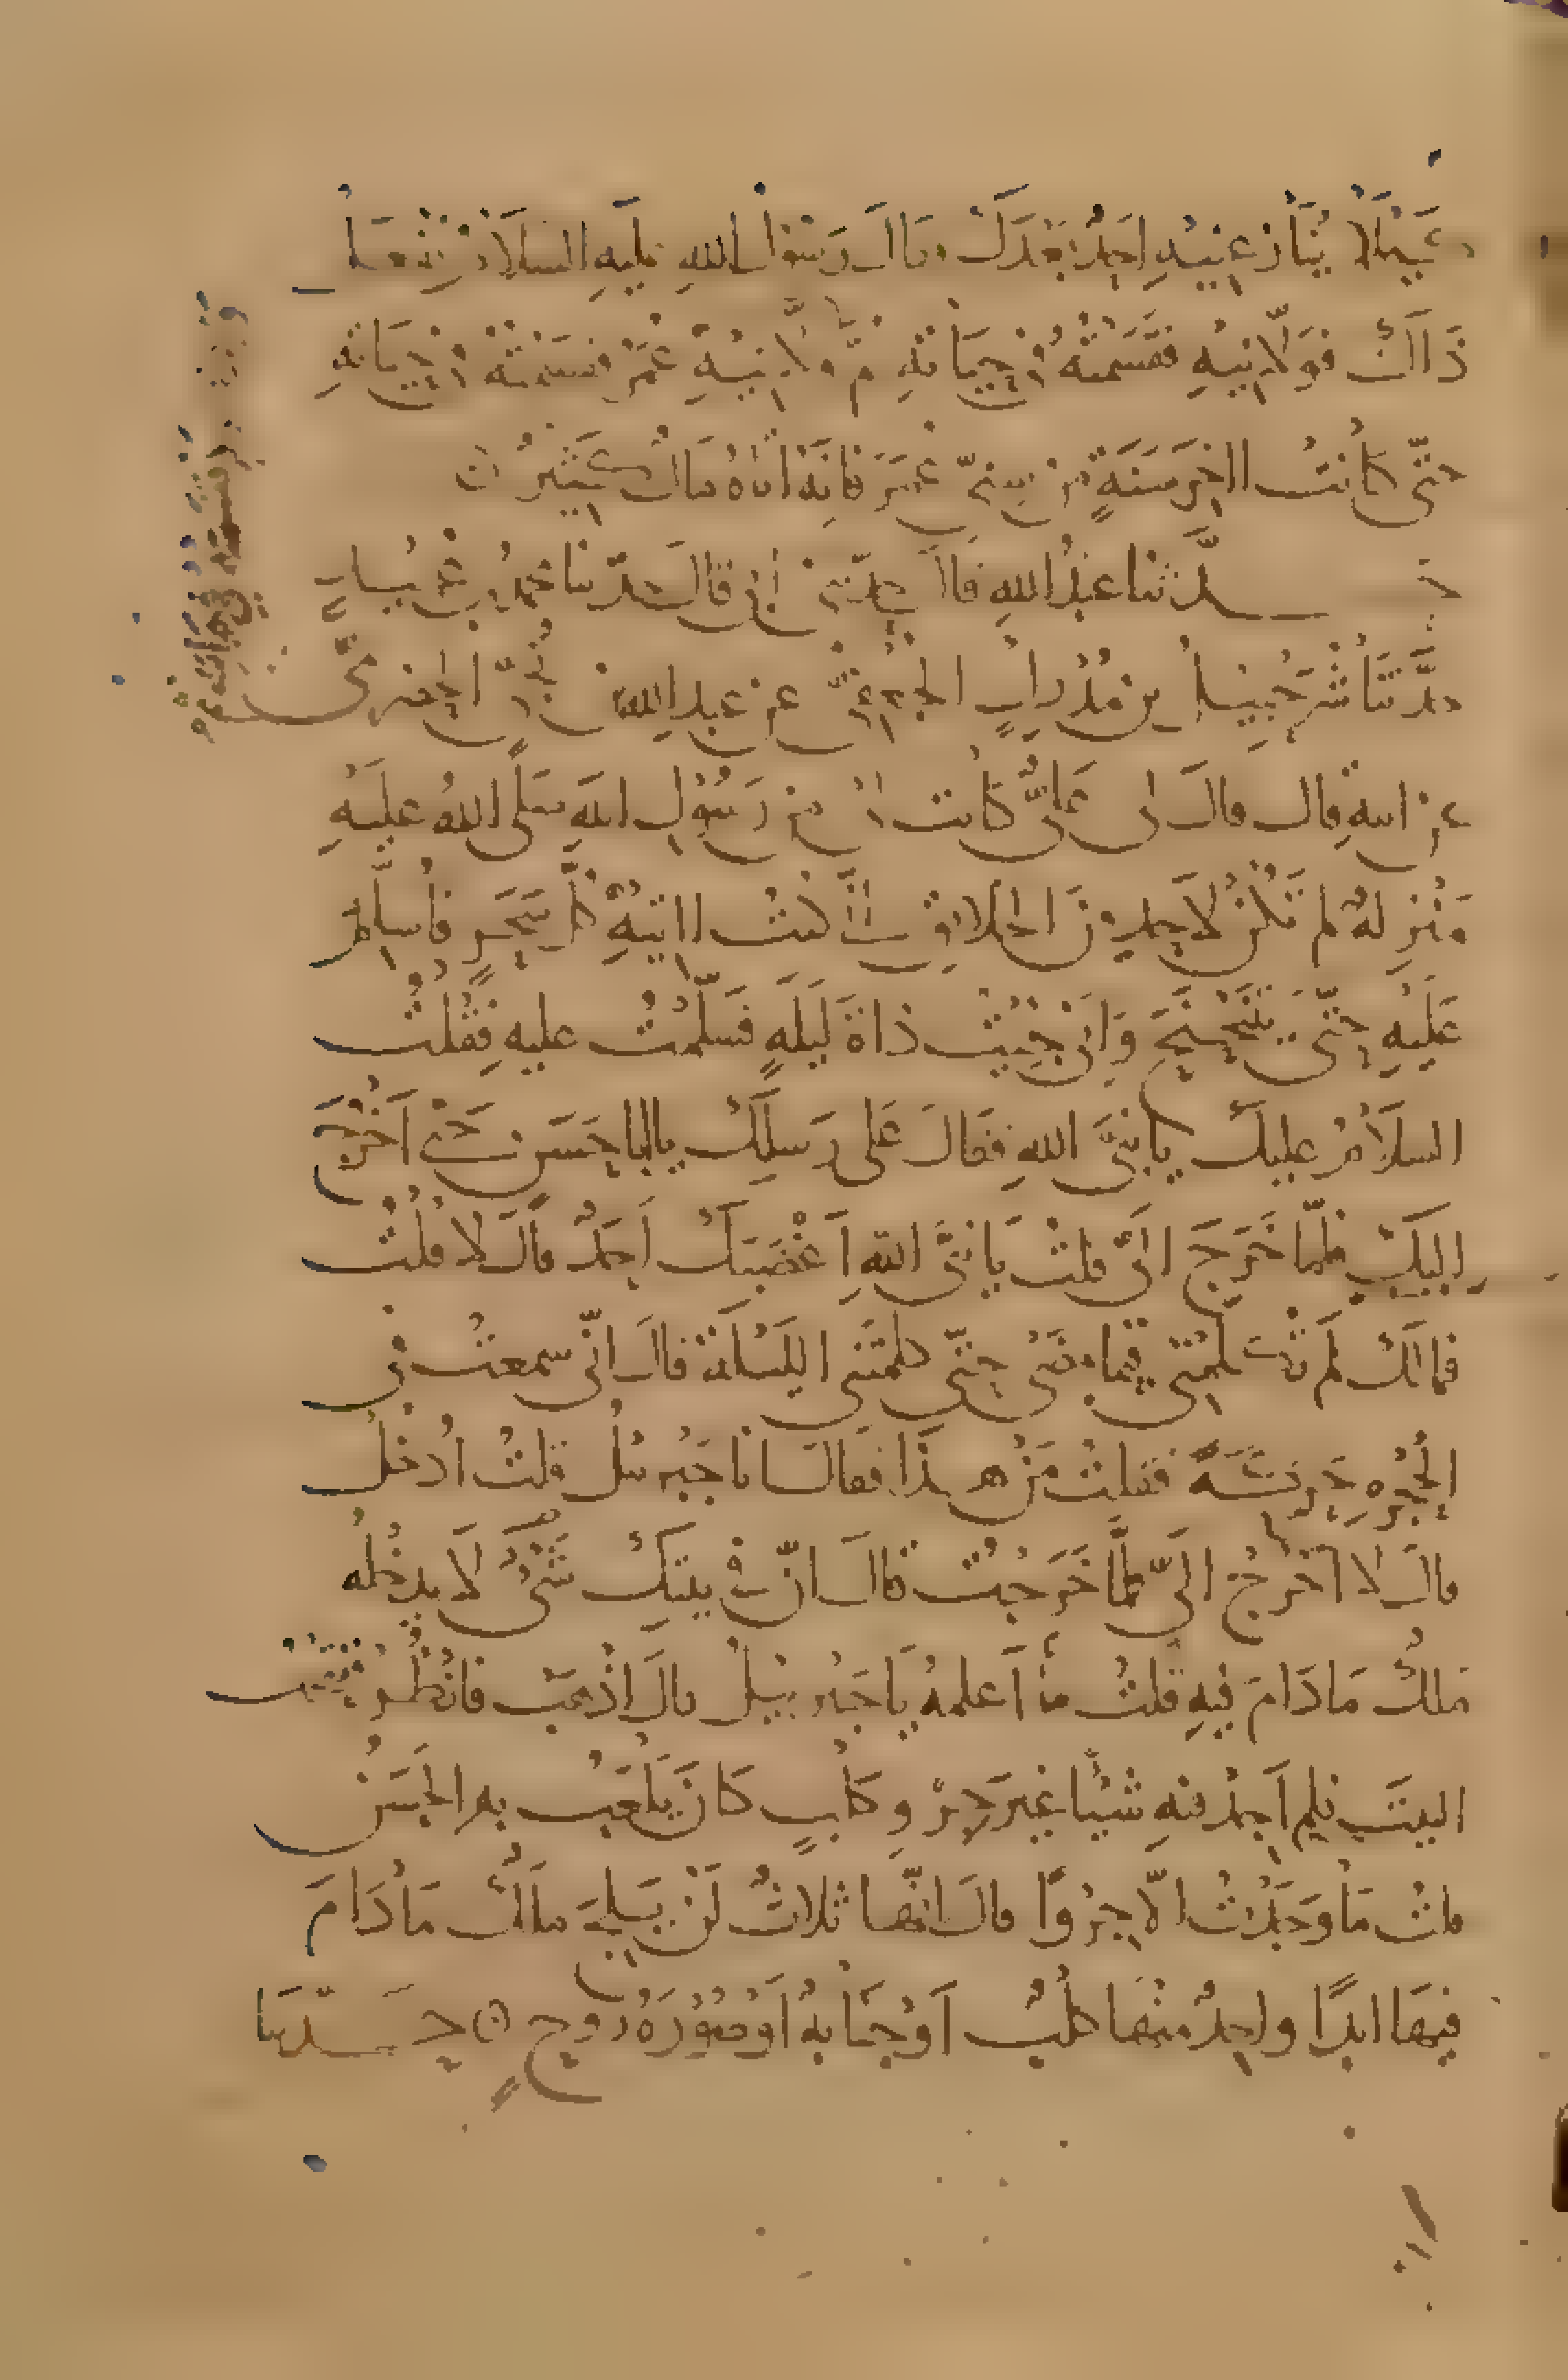 كيلا ينازعنيه احد بعدك فقال رسول الله عليه السلام نفعل
ذاك فولانيه فقسمته في حياته ثم ولانيه عمر فقسمته في حياته
حتى كانت اخر سنة من سني عمر فانه اتاه مال كثير ن
حدثنا عبد الله قال حدثني ابي قال حدثنا محمد بن عبيد
حدثنا شرحبيل بن مدرك الجعفي عن عبد الله بن نجي الحضرمي
عن ابيه قال قال لي علي كانت لي من رسول الله صلى الله عليه
منزلة لم تكن لاحد من الخلائق اني كنت اتيه كل سحر فاسلم
عليه حتى يتنحنح واني جئت ذاة ليلة فسلمت عليه فقلت
السلام عليك يا نبي الله فقال على رسلك يا ابا حسن حتى اخرج
اليك فلما خرج الي قلت يا نبي الله اغضبك احد قال لا قلت
فما لك لم تكلمني فيما مضى حتى كلمتني الليلة قال اني سمعت في
الحجرة حركة فقلت من هذا فقال انا جبريل قلت ادخل
قال لا اخرج الي فلما خرجت قال ان في بيتك شيء لا يدخله
ملك ما دام فيه قلت ما اعلمه يا جبريل قال اذهب فانظر ففتحت
البيت فلم اجد فيه شيئا غير جرو كلب كان يلعب به الحسن
قلت ما وجدت الا جروا قال انها ثلاث لن يلج ملك ما دام
فيها ابدا واحد منها كلب او جنابة او صورة روح ن حدثنا